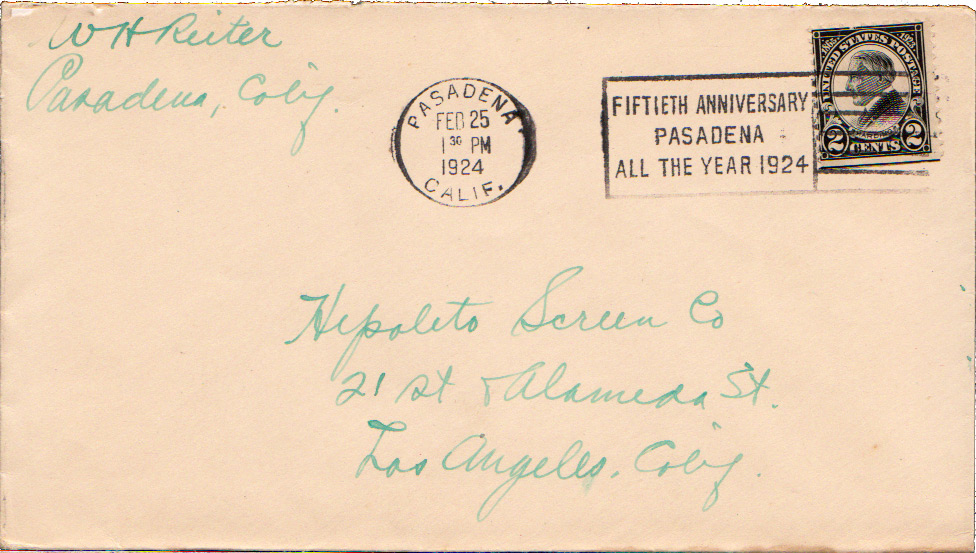 W H Reiter
Pasadena, Calif.
PASADENA
FEB 25
1 30 PM
1924
CALIF.
FIFTIETH ANNIVERSARY
PASADENA
ALL THE YEAR 1924
1865 1923
UNITED STATES POSTAGE
HARDING
2 CENTS 2
Hipolito Screen Co
21 st & Alameda St.
Los Angeles. Calif.